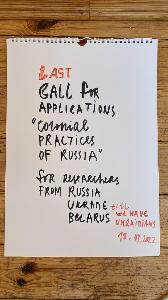 LAST
CALL for
APPLICATIONS
"COLONIAL
PRACTICES
OF RUSSIA"
for RESEARCHERS
FROM RUSSIA
UKRANE
BELARUS
till
WE HAVE
UKRAINIANS
18.07.2022